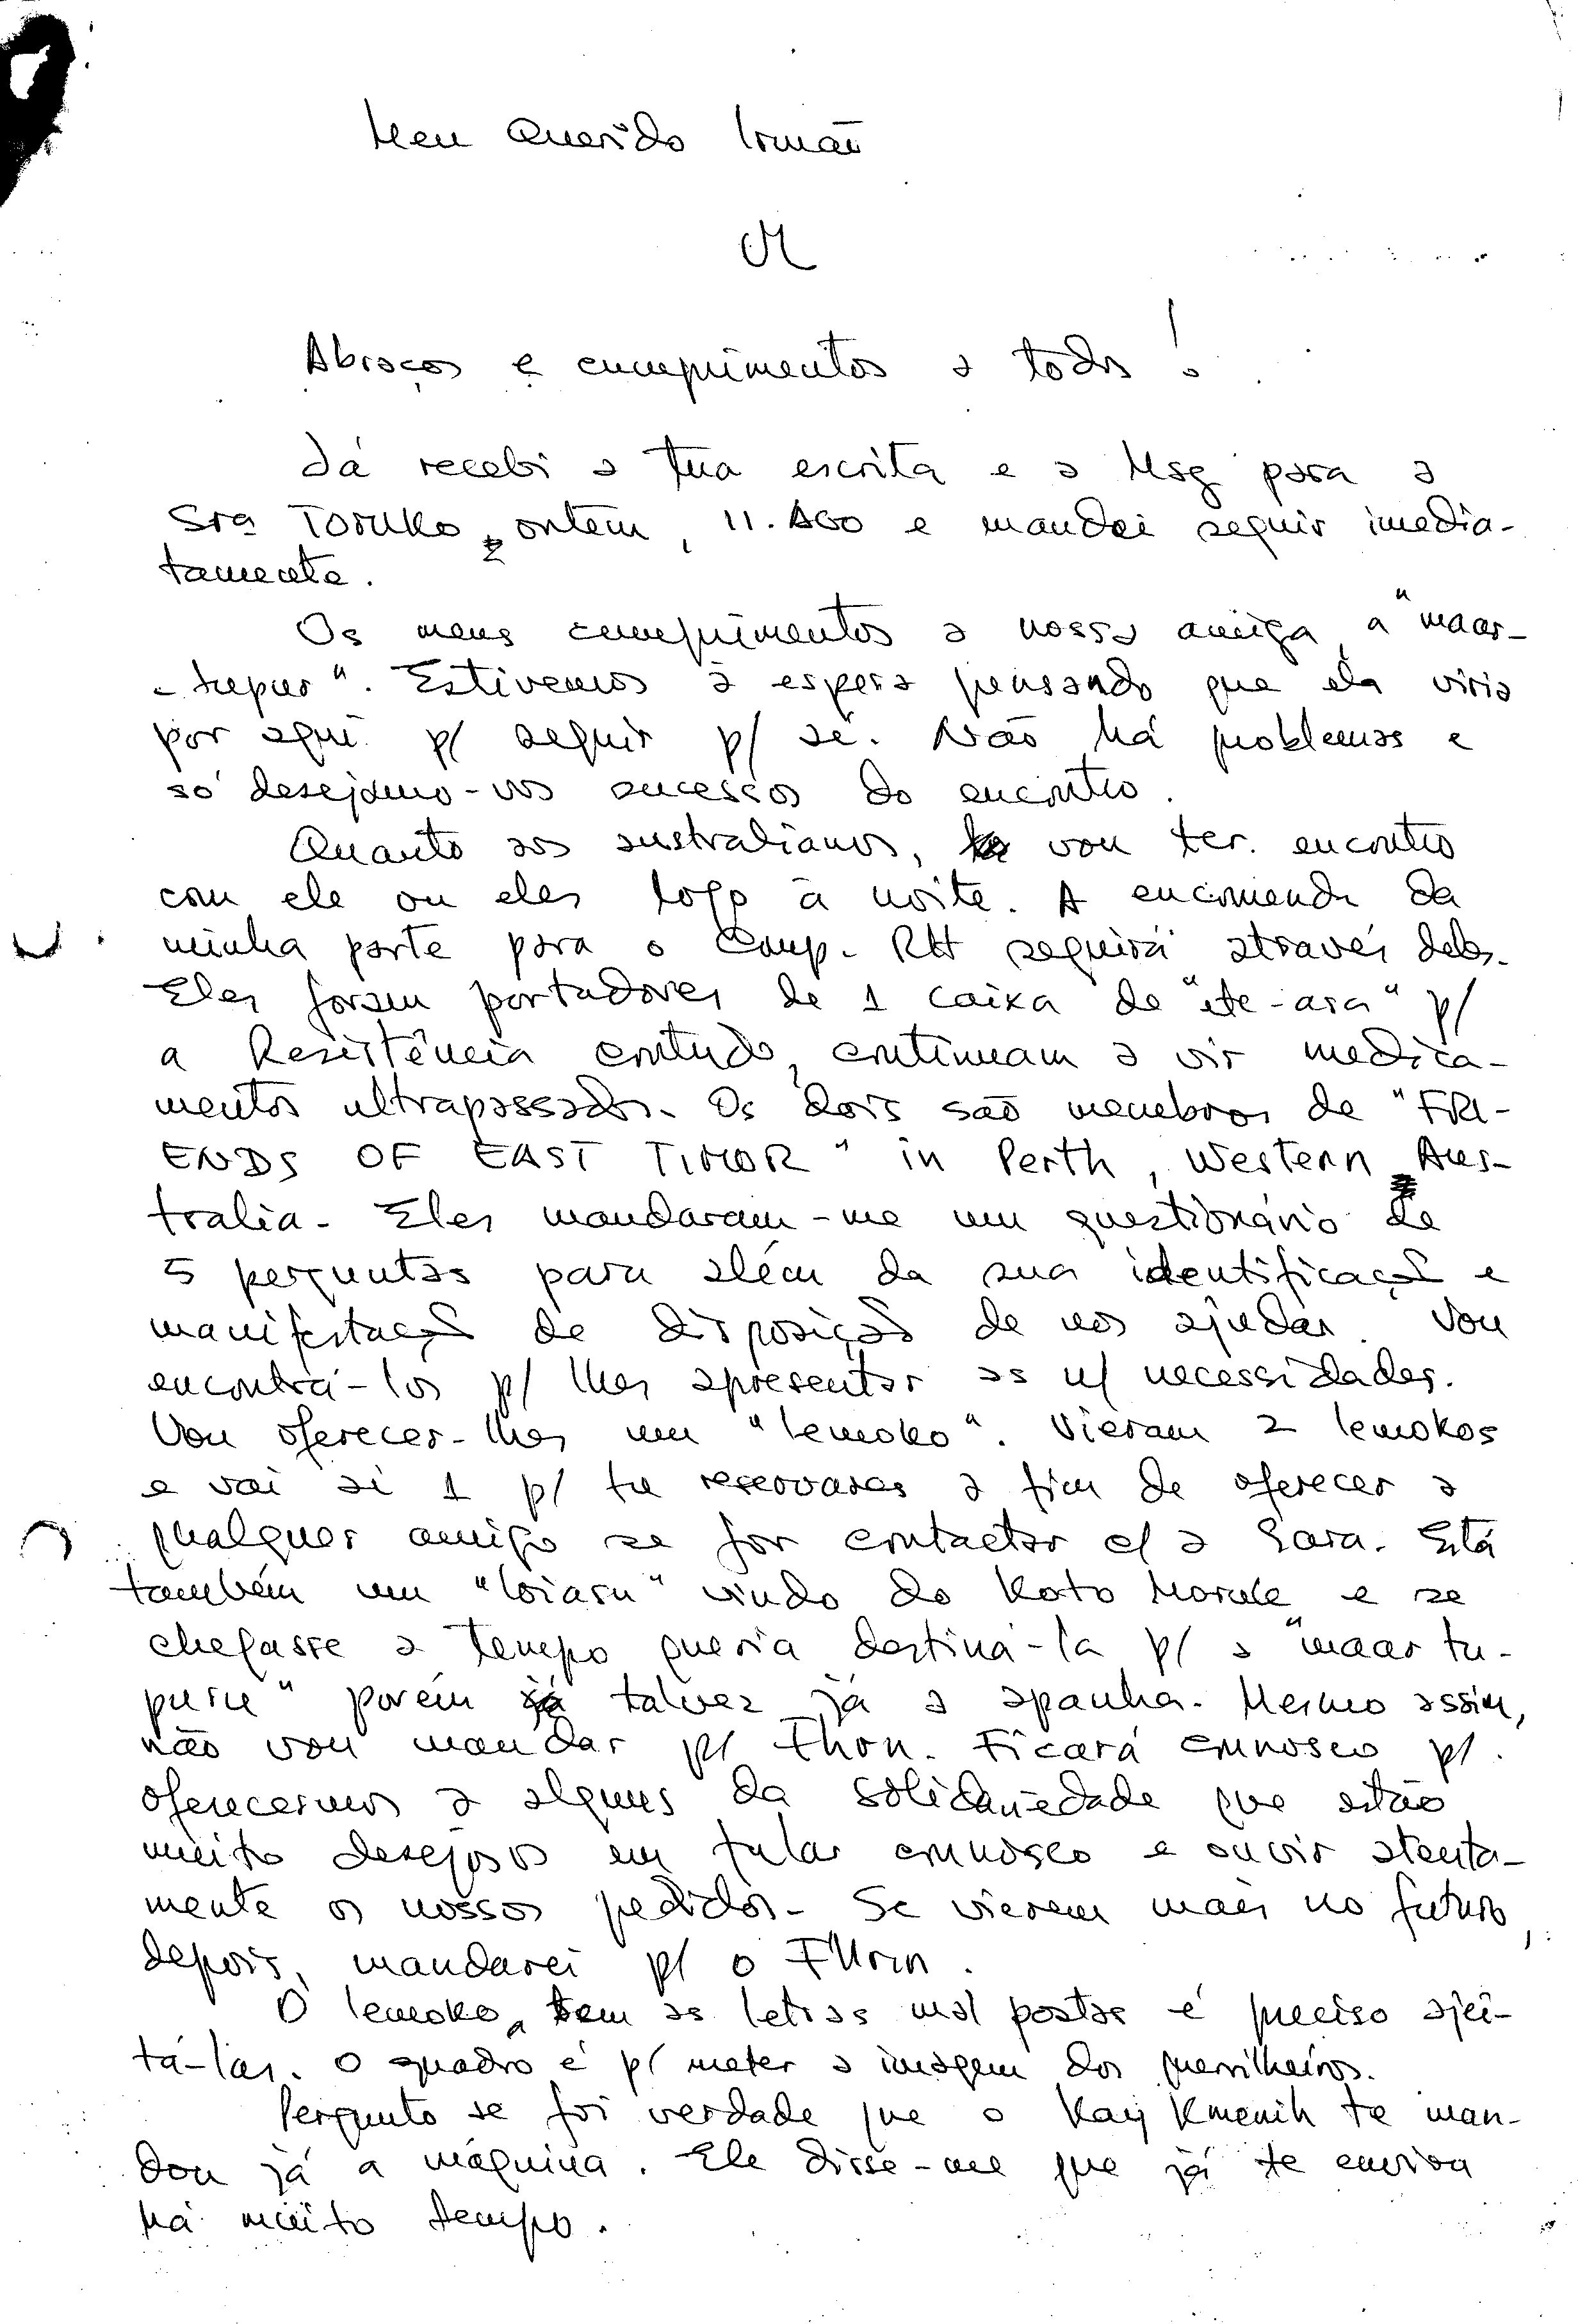 Meu Querido Irmão
M
Abraços e cumprimentos a todos!
Já recebi a tua escrita e a Msg para a
Srª TORUKO, ontem, 11.AGO e mandei seguir imedia-
tamente.
Os meus cumprimentos a nossa amiga, a "maar-
Estivemos à espera pensando que ela viria
por aqui p/ seguir p/ aí. Não há problemas e
só desejamo-vos sucessos do encontro.
Quanto aos australianos, vou ter encontro
com ele ou eles logo à noite. A encomenda da
minha parte para o Comp. RH seguirá através deles.
Eles foram portadores de 1 caixa de "ate-asa" p/
a Resistência contudo, continuam a vir medica-
mentos ultrapassados. Os dois são membros de "FRI-
ENDS OF EAST TIMOR" in Perth, Western Aus-
tralia. Eles mandaram-me um questionário de
5 perguntas para além da sua identificação e
manifestação de disposição de nos ajudar. Vou
encontrá-los p/ lhes apresentar as n/ necessidades.
Vou oferecer-lhes um "lemoko". Vieram 2 lemokos
e vai aí 1 p/ tu reservares a fim de oferecer a
qualquer amigo se for contactar c/ a Sara. Está
também um "loiasu" vindo do Kato Morule e se
chegasse a tempo queria destiná-la p/ a "maar tu-
puru" porém talvez já a apanha. Mesmo assim,
não vou mandar p/ Fhon. Ficará connosco p/
oferecermos a alguns da solidariedade que estão
muito desejosos em falar connosco e ouvir atenta-
mente os nossos pedidos. Se vierem mais no futuro,
depois, mandarei p/ o
O lemoko, tem as letras mal postas é preciso ajei-
tá-las. O quadro é p/ meter a imagem dos guerrilheiros.
Pergunto se foi verdade que o Kaij Kmenih te man-
dou já a máquina. Ele disse-me que já te enviou
há muito tempo.